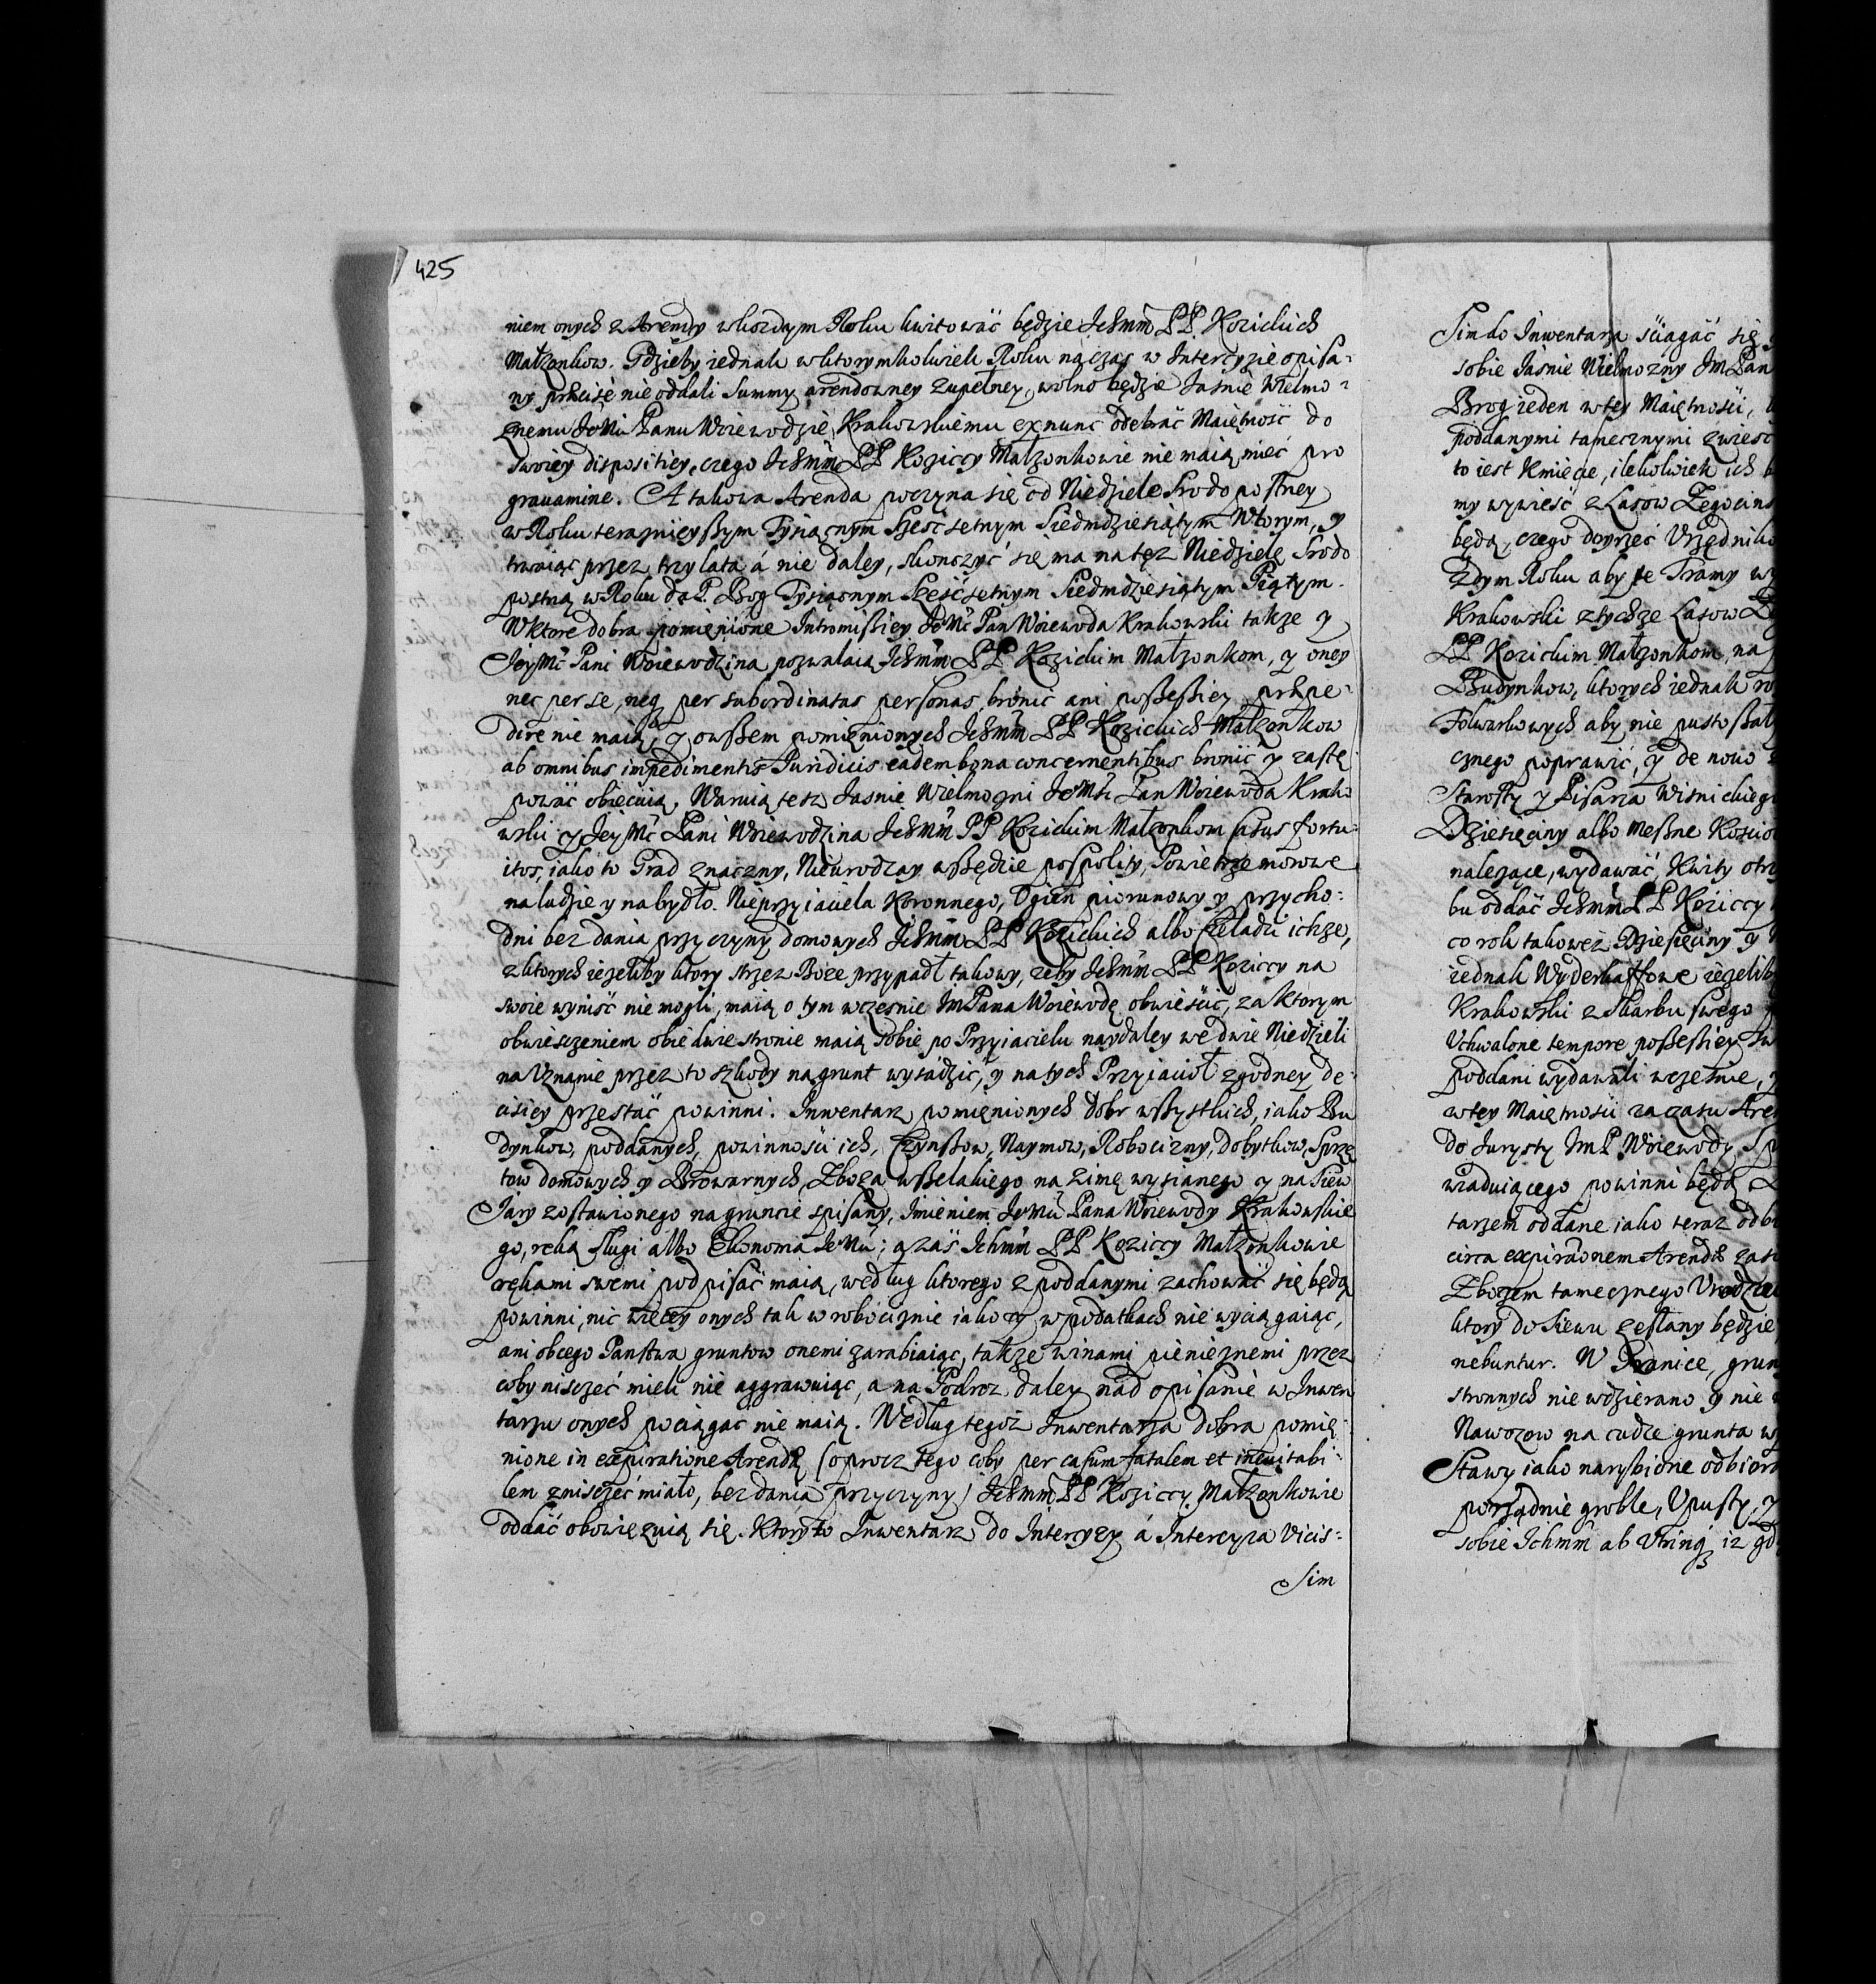 425
niem onych z Arendy w kozdym Roku kwitować będzie Ichmm PP Kozickich
Małzonkow. Gdzieby iednak w ktorymkolwiek Roku na czas w Intercyzie opisa-
ny præcise nie oddali Summy arendowney zupełney, wolno będzie Jasnie Wielmo-
znemu Jemci Panu Woiewodzie Krakowskiemu ex nunc odebrać Maiętność do
swoiey dispositiey, czego Ichmm PP Koziccy Małzonkowie nie maią mieć pro
gravamine. A takowa Arenda poczyna się od Niedziele Srodopostney
w Roku teraznieyßym Tysiącnym Sześćsetnym Siedmdziesiątym Wtorym, y
trwaiąc przez trzy lata á nie daley, skonczyć się ma na tęz Niedzielę Srodo
postną w Roku da P. Bog Tysiąonym Sześćsetnym Siedmdziesiątym Piątym.
W ktore dobra pomienione Intromißiey JeMć Pan Woiewoda Krakowski takze y
JeyMć Pani Woiewodzina pozwalaią Ichmm PP Kozickim Małzonkom, y oney
nec per se, neq per subordinatas personas bronić ani poßeßiey præpe-
dire nie maią, y owßem pomięnionych Ichmm PP Kozickich Małzonkow
ab omnibus impedimentis Juridicis eadem bona concernentibus bronić y zastę
pować obiecuią. Waruią tesz Jasnie Wielmozni JeMć Pan Woiewoda Krako
wski y JeyMć Pani Woiewodzina Ichmm PP Kozickim Małzonkom casus fortu-
itos, iako to Grad znaczny, Nieurodzay wßędzie pospolity, Powietrze morowe
na ludzie y na bydło. Nieprzyiaciela Koronnego, Ogien piorunowy y przycho-
dni bez dania przyczyny domowych Ichmm PP Kozickich albo Czeladzi ichze,
z ktorych iezeliby ktory strzez Boze przypadł takowy, zeby Ichmm PP Koziccy na
swoie wyniść nie mogli, maią o tym wczesnie JmPana Woiewodę obwieścić, za ktorym
obwiesczeniem obiedwie stronie maią sobie po Przyiacielu naydaley we dwie Niedzieli
na Uznanie przez to szkody na grunt wysadzic, y na tych Przyiacioł zgodney de-
cisiey przestać powinni. Inwentarz pomięnionych Dobr wßystkich, iako Bu
dynkow, poddanych, powinności ich, Czynßow, Naymow, Robocizny, dobytkow, Sprzę
tow domowych y Browarnych, Zboza wßelakiego na zimę wysianego y na Siew
Jary zostawionego na gruncie spisany, Imieniem Jemci Pana Woiewody Krakowskie
go, ręką slugi albo Ekonoma JeMci; a zaś Ichmm PP Koziccy Małzonkowie
rękami swemi podpisać maią, według ktorego z poddanymi zachować się będą
powinni, nic więcey onych tak w robociznie iako y w podatkach nie wyciągaiąc,
ani obcego Panstwa gruntow onemi zarabiaiąc, takze winami pieniężnemi przez
coby nisczeć mieli nie aggrawuiąc, a na Podroz daley nad opisanie w Inwen
tarzu onych pociągac nie maią. Według tegoż Inwentarza dobra pomię-
nione in expiratione Arendæ (oprocz tego coby per casum fatalem et inevitabi-
lem zniszczeć miało, bez dania przyczyny) Ichmm PP Koziccy Małzonkowie
oddać obowięzuią się. Ktory to Inwentarz do Intercyzy á Intercyza vicis-
sim
Sim do Inwentarza sciągać się
sobie Jaśnie Wielmozny JmPan
Brog ieden w tey Maiętności,
poddanymi tamecznymi zwiesć
to iest Kmiecie, ilekolwiek ich
my wywieść z Lasow Zegocins
będą, czego doyrzeć Urzędnik
zdym Roku aby te Tramy
Krakowski z tychze Lasow
PP Kozickim Małzonkom, na
Budynkow, ktorych iednak
Folwarkowych aby nie pustoßały
cznego poprawić, y de novo
Starosty y Pisarza Wisnickiego
Dziesięciny albo Meßne Kościo
nalezące, wydawać, Kwity
bu oddać Ichmm PP Koziccy
co rok takowez Dziesięciny y
iednak Wyderkaffowe iezelib
Krakowski z Skarbu swego
Uchwalone tempore poßeßiey
poddani wydawali wczesnie,
w tey Maiętności za czasu Aren
do Jurysty JmP Woiewody
wiaduiącego powinni będą
tarzem oddane iako teraz odb
circa expiraonem Arendæ
Zbozem tamecznego
ktory do Siewu zesłany będzie
nebuntur. W Granice, grun
stronnych nie wdzierano y nie
Nawozow na cudze grunta
Stawy iako narybione odbior
porządnie groble, Upusty, y
sobie Ichmm ab Utrinq iz